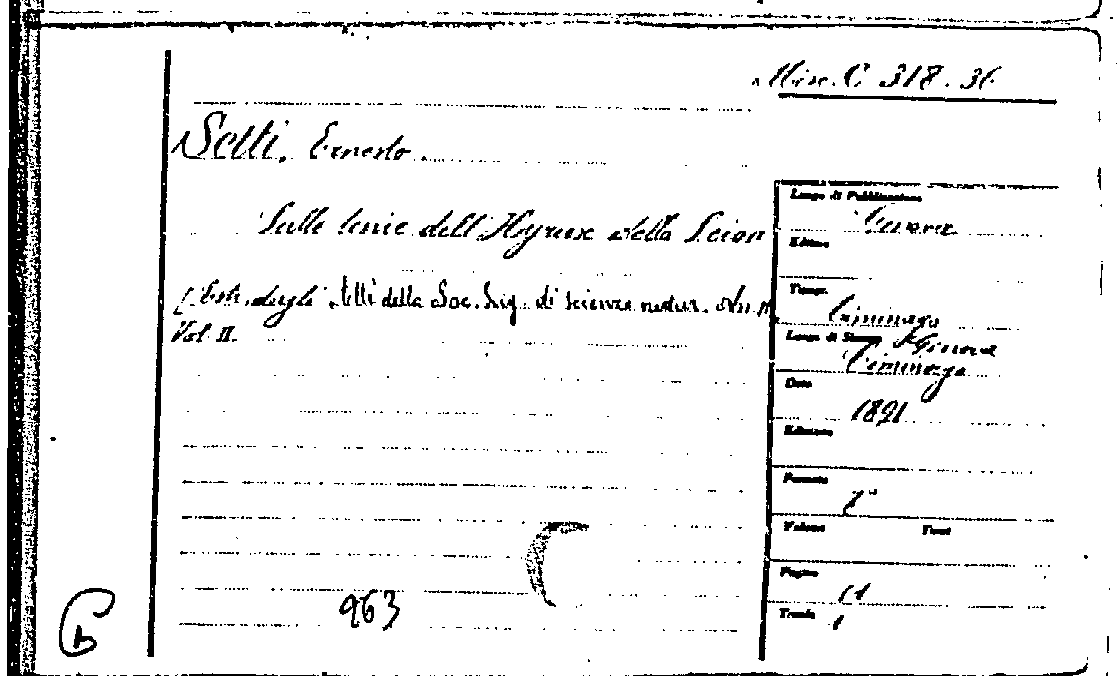 Misc. C 318. 36
Setti, Ernesto
Sulle tenie dell'Hyrax della Scioa
[Estr. degli Atti della Soc. Lig. di scienze natur. Ann.
Vol II.
Luogo di Pubblicazione
Genova
Editore
Tipogr.
Ciminago
Luogo di Stampa Genova
Ciminago
Data
1891
Edizione
Formato
8°
Volume Tomi
Pagine
11
Tavole
1
963
b